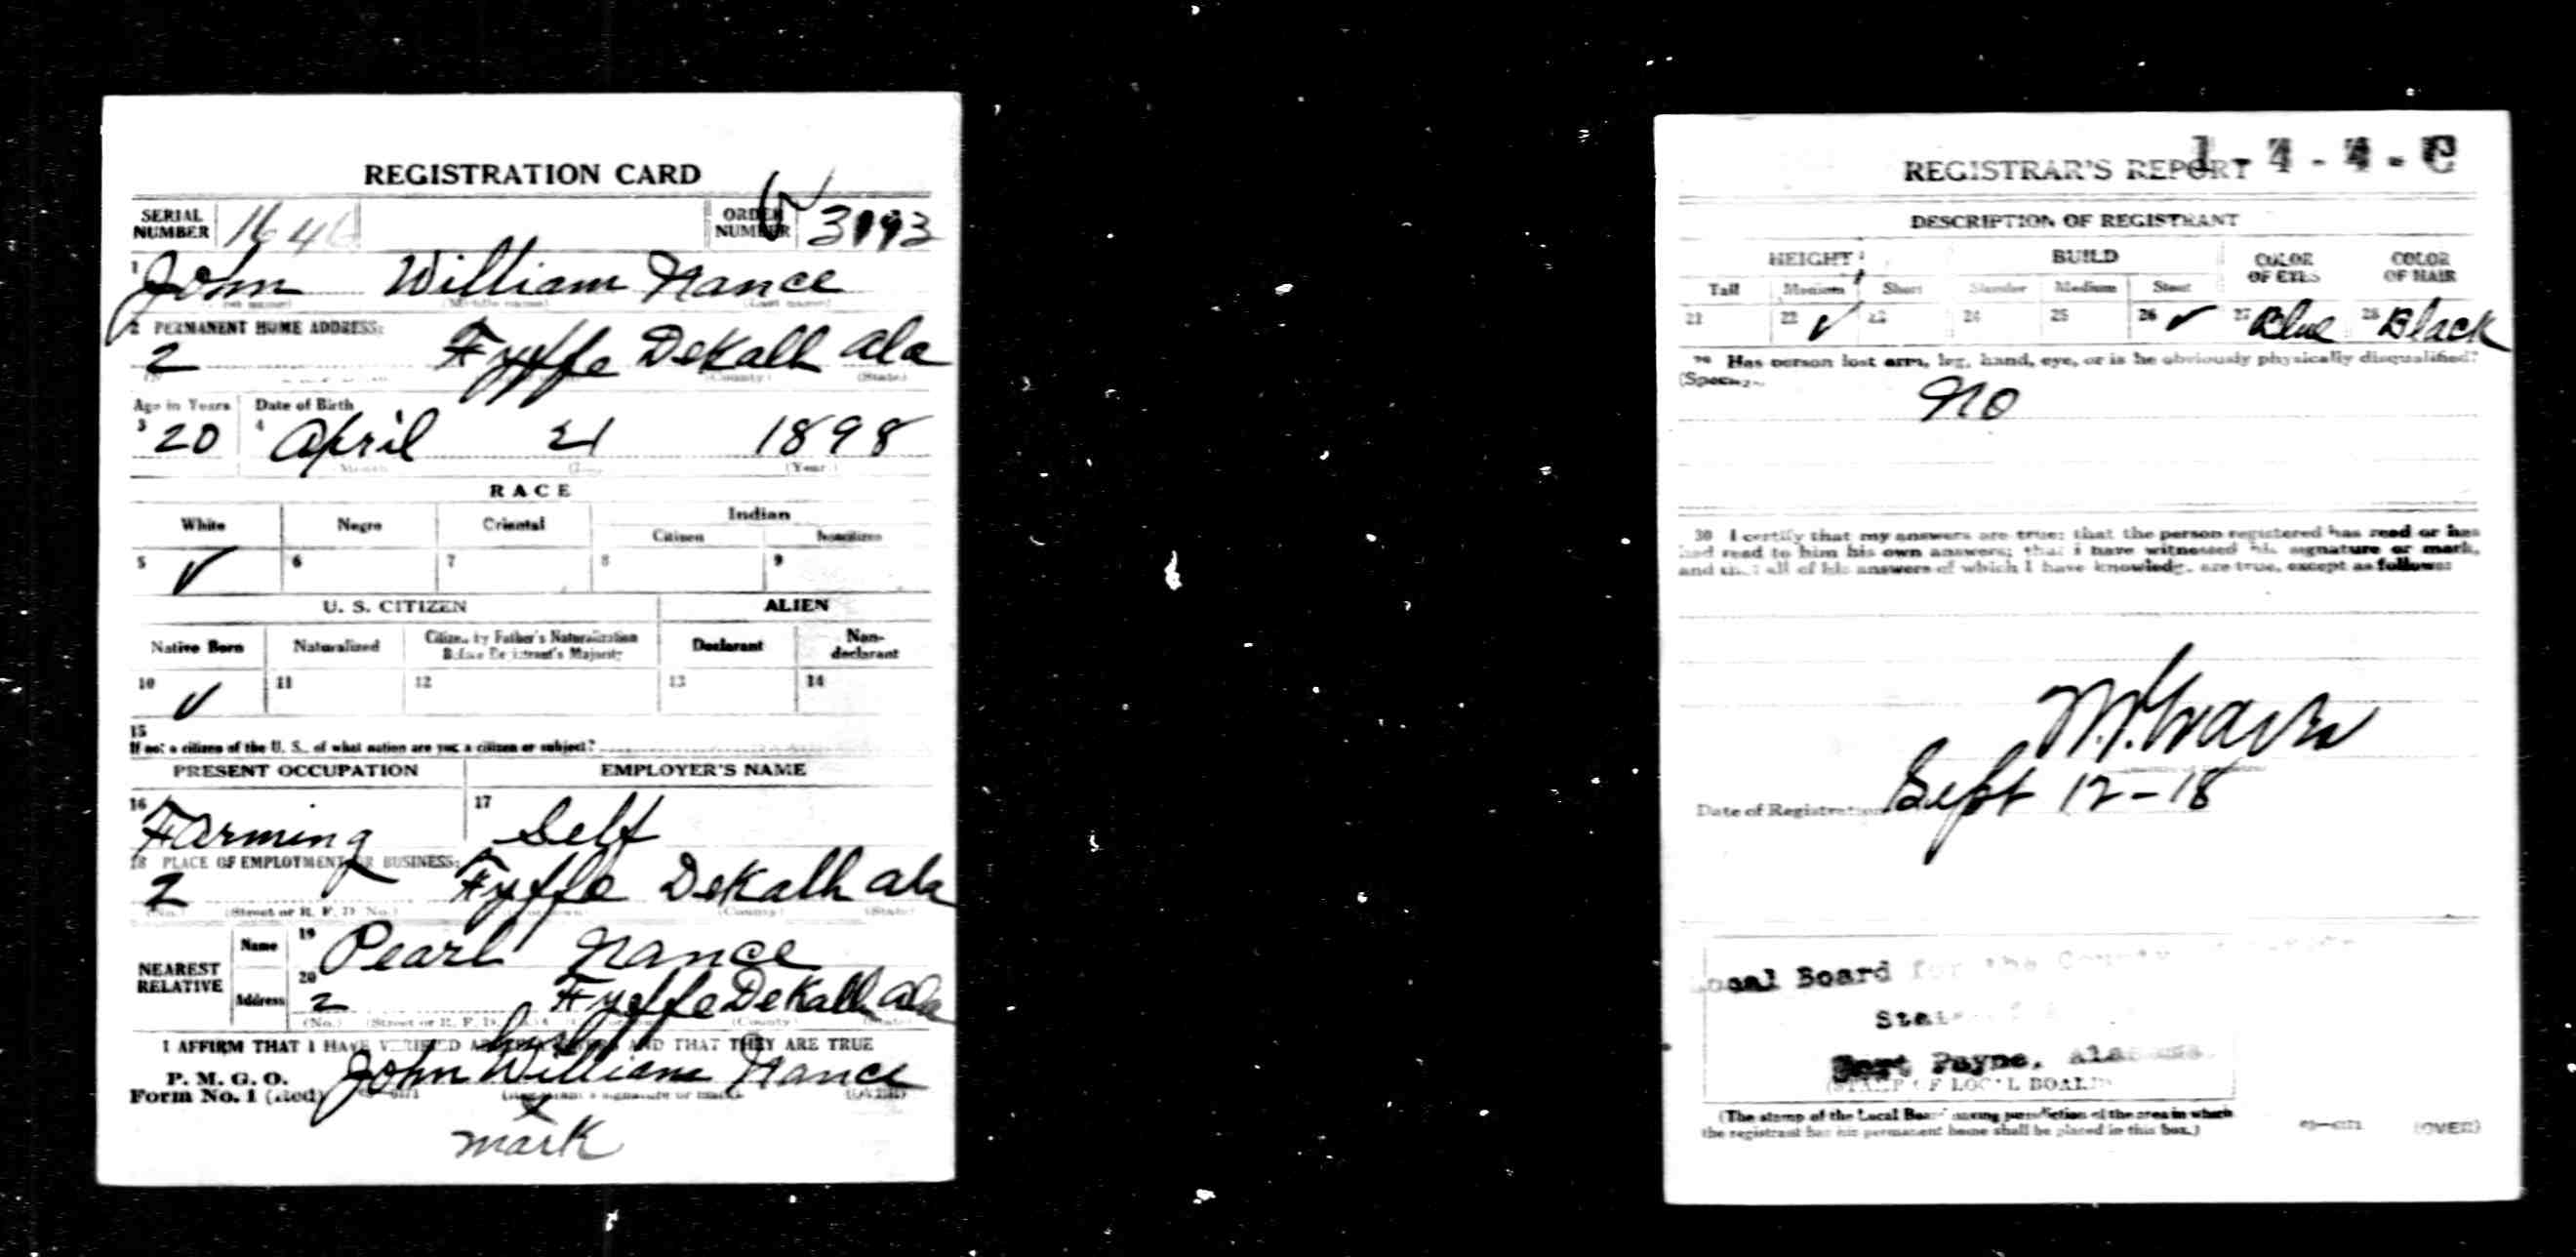 REGISTRATION CARD
SERIAL NUMBER 1646 ORDER NUMBER 3193
1 John William Nance
(Middle name) (Last name)
2 PERMANENT HOME ADDRESS:
2 Fyffe DeKalb Ala
(County) (State)
Age in Years Date of Birth
3 20 4 April 21 1898
Month (Year)
RACE
White Negro Oriental Indian
Citizen Noncitizen
5 ✓ 6 7 8 9
U. S. CITIZEN ALIEN
Native Born Naturalized Citizen by Father's Naturalization Before Registrant's Majority Declarant Non-declarant
10 ✓ 11 12 13 14
15
If not a citizen of the U. S., of what nation are you a citizen or subject?
PRESENT OCCUPATION EMPLOYER'S NAME
16 Farming 17 Self
18 PLACE OF EMPLOYMENT OR BUSINESS:
2 Fyffe DeKalb Ala
(No.) (Street or R. F. D. No.) (County) (State)
NEAREST RELATIVE Name 19 Pearl Nance
Address 20 2 Fyffe DeKalb Ala
(No.) (Street or R. F. D. (County) (State)
I AFFIRM THAT I HAVE VERIFIED AND THAT THEY ARE TRUE
P. M. G. O.
Form No. 1 (Red) John William Nance
(Registrant's signature or mark) (OVER)
x
mark
REGISTRAR'S REPORT 1-4-4-C
DESCRIPTION OF REGISTRANT
HEIGHT BUILD COLOR OF EYES COLOR OF HAIR
Tall Medium Short Slender Medium Stout
21 22 ✓ 23 24 25 26 ✓ 27 Blue 28 Black
29 Has person lost arm, leg, hand, eye, or is he obviously physically disqualified?
(Specify)
No
30 I certify that my answers are true; that the person registered has read or has
had read to him his own answers; that I have witnessed his signature or mark,
and that all of his answers of which I have knowledge are true, except as follows:
Date of Registration Sept 12-18
Local Board for the County
State of
Fort Payne, Alabama.
(STAMP OF LOCAL BOARD)
(The stamp of the Local Board having jurisdiction of the area in which
the registrant has his permanent home shall be placed in this box.)
(OVER)